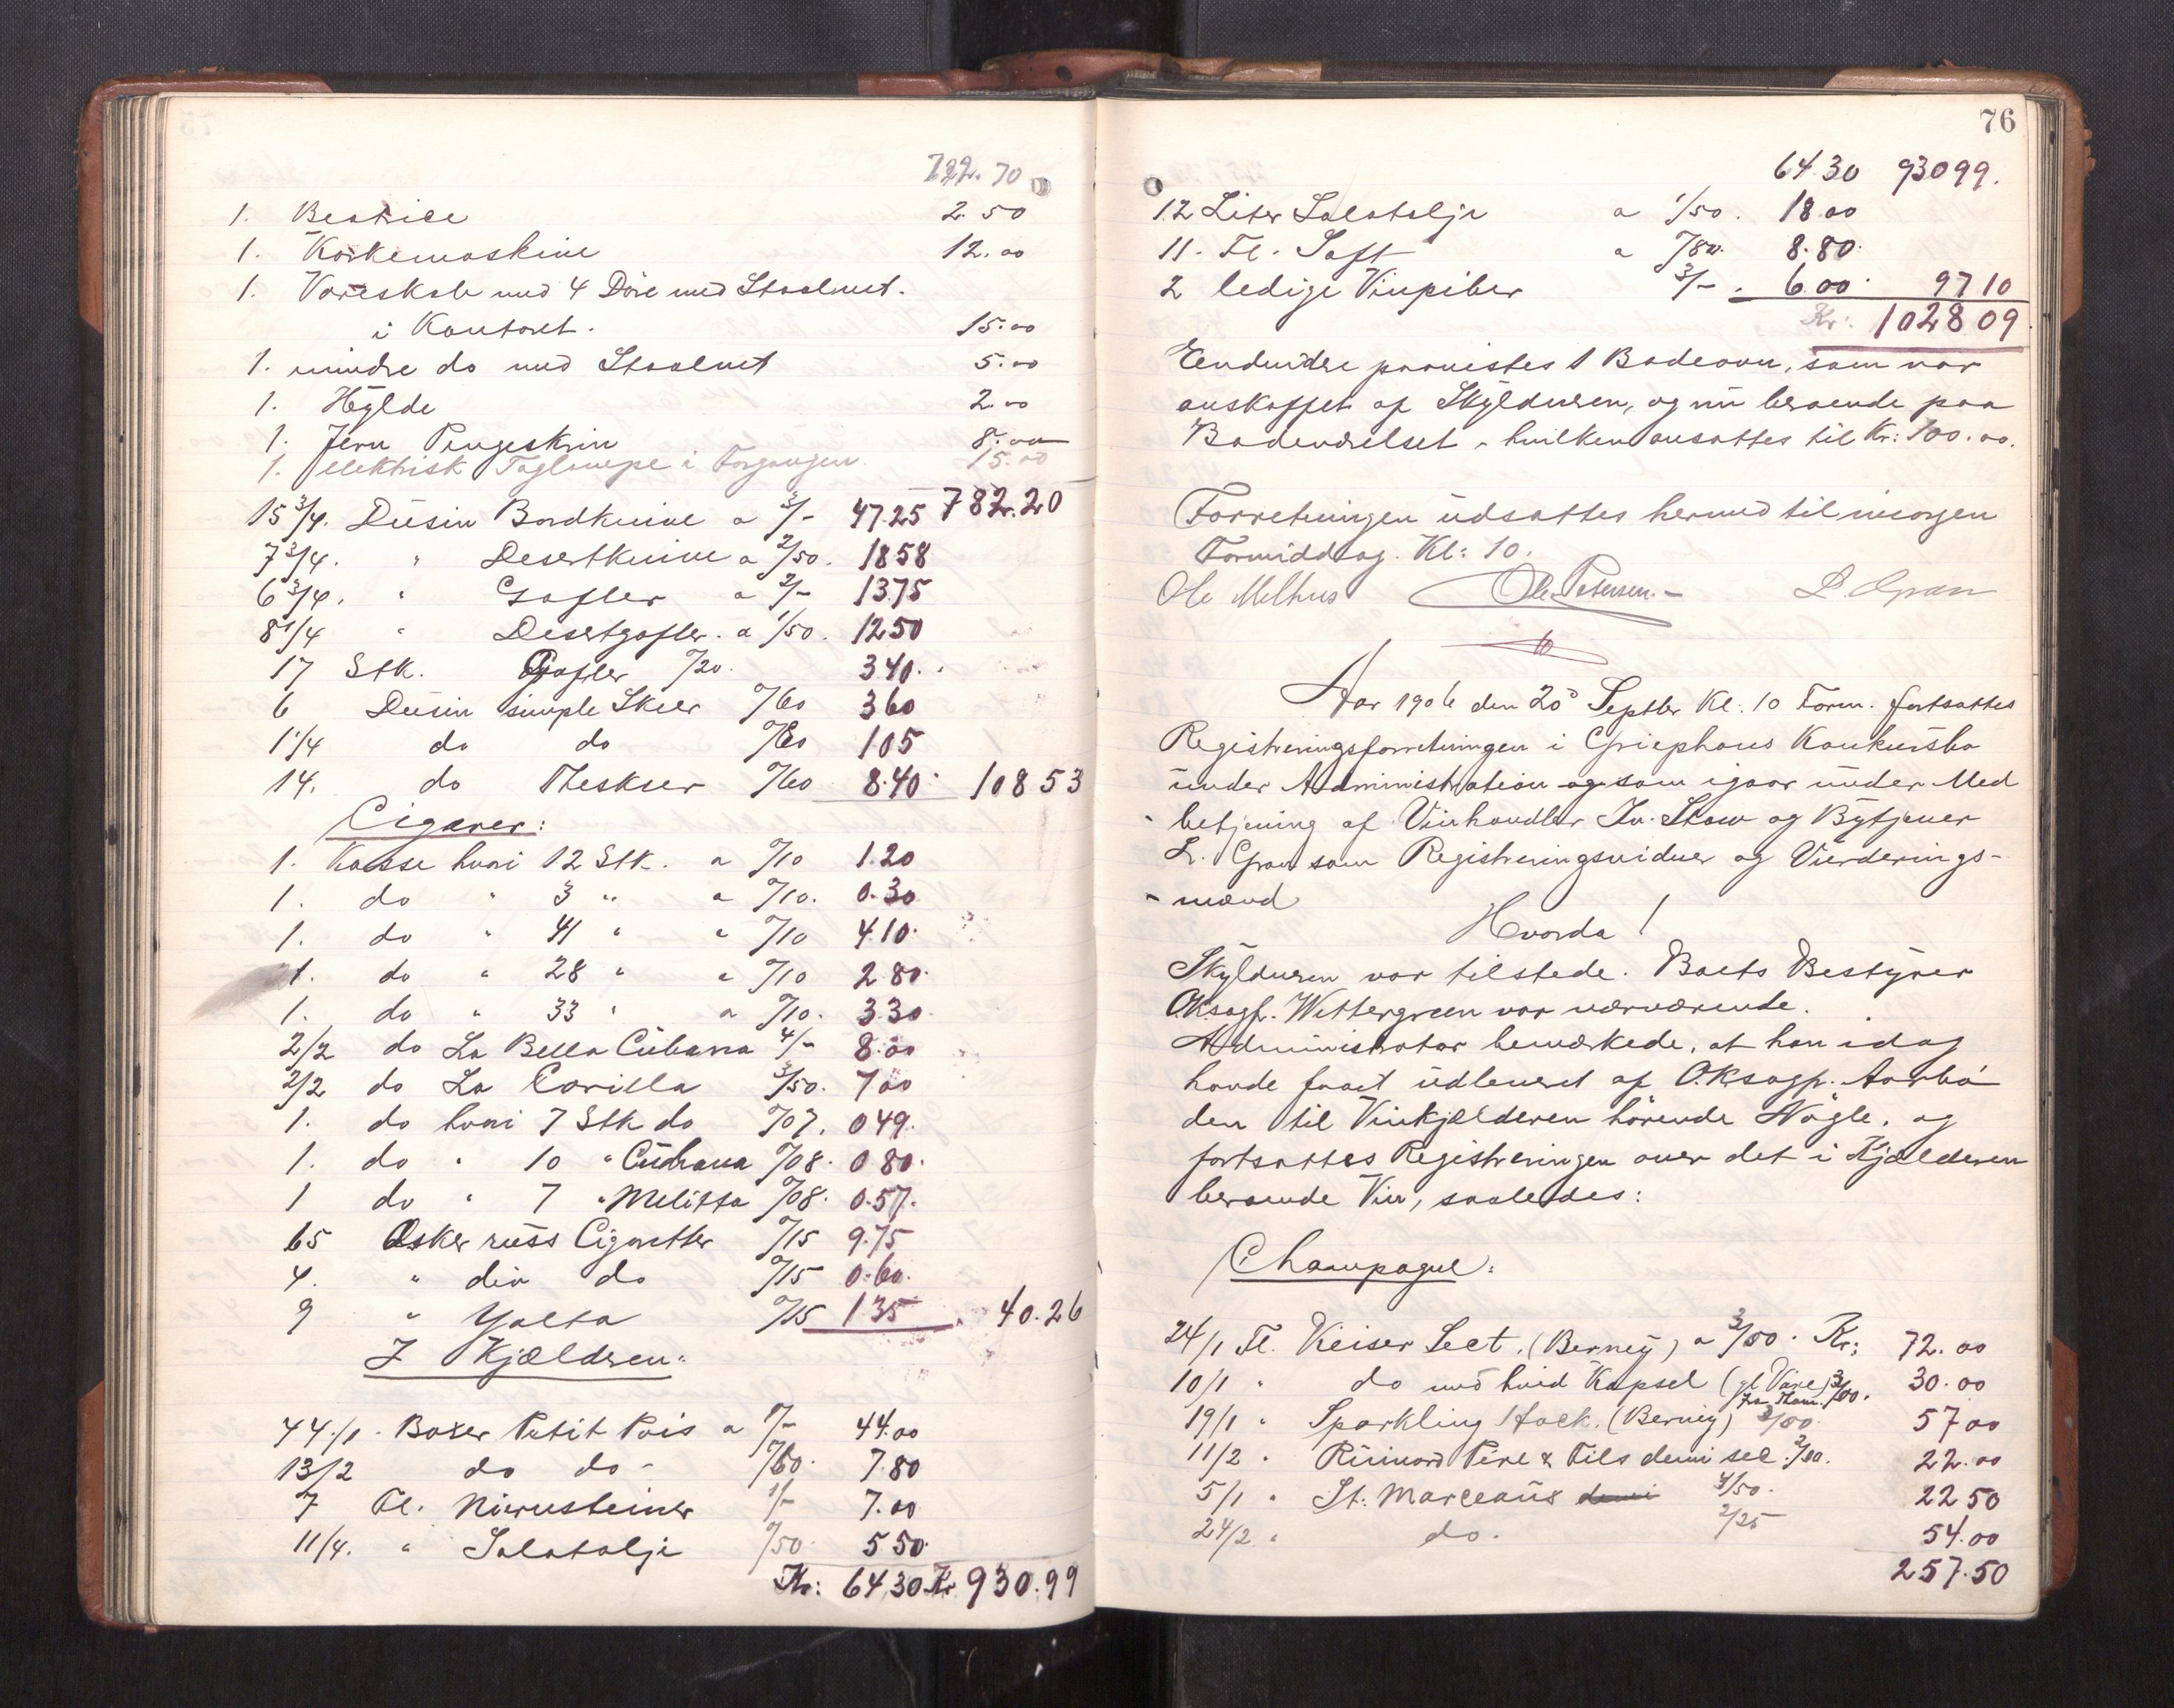 722.70
1. Bestice 2.50
1. Korkemaskine 12.00
1. Vareskab med 4 Döre med Staalnet.
i Kontoret. 15.00
1. mindre do med Staalnet 5.00
1. Hÿlde 2.00
1. Jern Pengeskrin 8.00
1. elektrisk Taglampe i Forgangen 15.00
782.20
15 3/4. Dusin Bordknive a 3/- 47.25
7 3/4. " Desertknive a 2/50. 18 58
6 3/4. " Gafler a 2/- 13.75
8 1/4 " Desertgafler. a 1/50. 12 50
17 Stk. Gafler "/20. 3 40.
6 Dusin simple Skeer "/60 3 60
1 1/4 do do "/80 1 05
14. do Theskeer "/60 8.40 108 53
Cigarer:
1. Kasse hvori 12 Stk. a "/10 1.20
1. do " 3 " a "/10. 0.30
1. do " 41 " " "/10 4 10
1. do " 28 " " "/10 2 80
1. do " 33 " a "/10. 3 30
2/2 do La Bella Cubana 4/- 8.00
2/2 do La Corilla 3/50. 7 00
1. do hvori 7 Stk do "/07. 0 49.
1. do " 10 " Cubana "/08. 0 80.
1 do " 7 " Melitta "/08. 0.57.
65 Æsker russ Cigaretter "/15 9.75
4. " div do "/15 0.60.
9 " Yalta "/15 1 35 40.26
I Kjælderen:
44/1 Boxer Petit Pois a 1/- 44.00
13/2 do do - "/60. 7.80
7 Fl. Niersteiner 1/- 7.00
11/4. " Salatolje "/50. 5 50
Kr: 64,30 Kr 930.99
76
64 30 930 99.
12 Liter Salatolje a 1/50. 18.00
11. Fl. Saft a "/80. 8.80.
2 ledige Vinpiber 3/-. 6.00 97 10
Kr: 1028 09
Eendvidere paavistes 1 Badeovn, som var
anskaffet af Skÿldneren, og nu beroende paa
Badeværelset, hvilken ansattes til Kr: 100.00.
Forretningen udsattes hermed til imorgen
Formiddag. Kl: 10.
Ole Melhus Ole Petersen. L. Gran
Aar 1906 den 20 Septbr Kl. 10 Form. fortsattes
Registreringsforretningen i Griephans Konkursbo
under Administration og som igaar under Med
betjening af Vinhandler Iv. Skaw og Bÿtjener
L. Gran som Registreringsvidner og Vurderings-
-mænd
Hvorda!
Skÿldneren var tilstede. Boets Bestÿrer
O.Ksagf. Wettergreen var nærværende.
Administrator bemærkede, at han idag
havde faaet udleveret af O.Ksagf. Aarbo
den til Vinkjælderen hörende Nögle, og
fortsattes Registreringen over det i Kjælderen
beroende Vin, saaledes:
Champagne:
24/1 Fl. Keiser Sect. (Berneÿ) a 3/00. Kr: 72.00
10/1 " do med hvid Kapsel (gl Vare) 3/00. 30.00
19/1 " Sparkling Hock. (Berneÿ) 3/00. 57 00
11/2 " Ruinard Pere & Fils demi sec. 2/00. 22.00
5/1 " St: Marceaux demi 4/50. 22 50
24/2 " do. 2/25 54.00
257.50